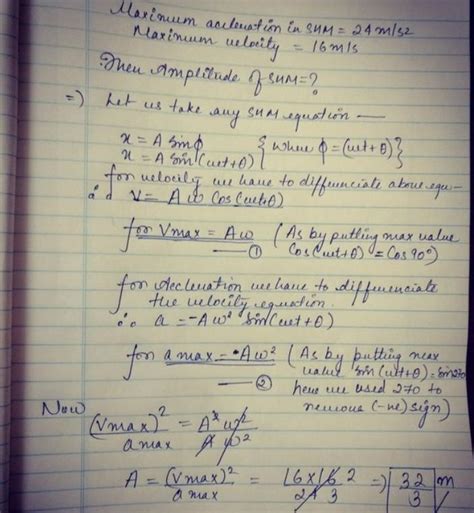 Maximum acceleration in SHM = 24 m/s2
Maximum velocity = 16 m/s
Then Amplitude of SHM = ?
=) Let us take any SHM equation —
x = A sinϕ
x = A sin(wt+θ) {where ϕ = (wt+θ)}
for velocity we have to differenciate above equ-
∴ v = Aw Cos(wt+θ)
for Vmax = Aw (As by putting max value
— ① Cos(wt+θ) = Cos90°)
for Accleration we have to differenciate
the velocity equation.
∴ a = -Aw² sin(wt+θ)
for a max = Aw² (As by putting max
— ② value sin(wt+θ) = sin270
here we used 270 to
remove (-ve) sign)
Now (Vmax)² / a max = A² w² / A w²
A = (Vmax)² / a max = 16×16 2 / 24 3 => 32/3 m